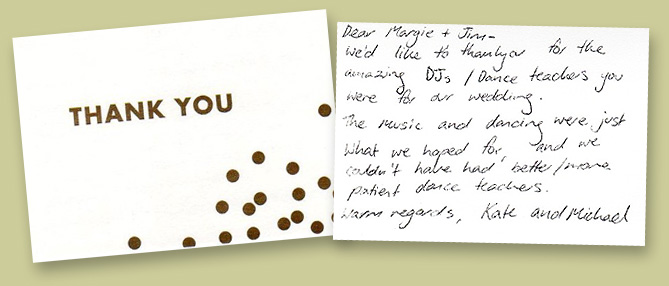 THANK YOU
Dear Margie + Jim-
We'd like to thankyou for the
amazing DJs / Dance teachers you
were for our wedding.
The music and dancing were just
what we hoped for, and we
couldn't have had better/more
patient dance teachers.
Warm regards, Kate and Michael